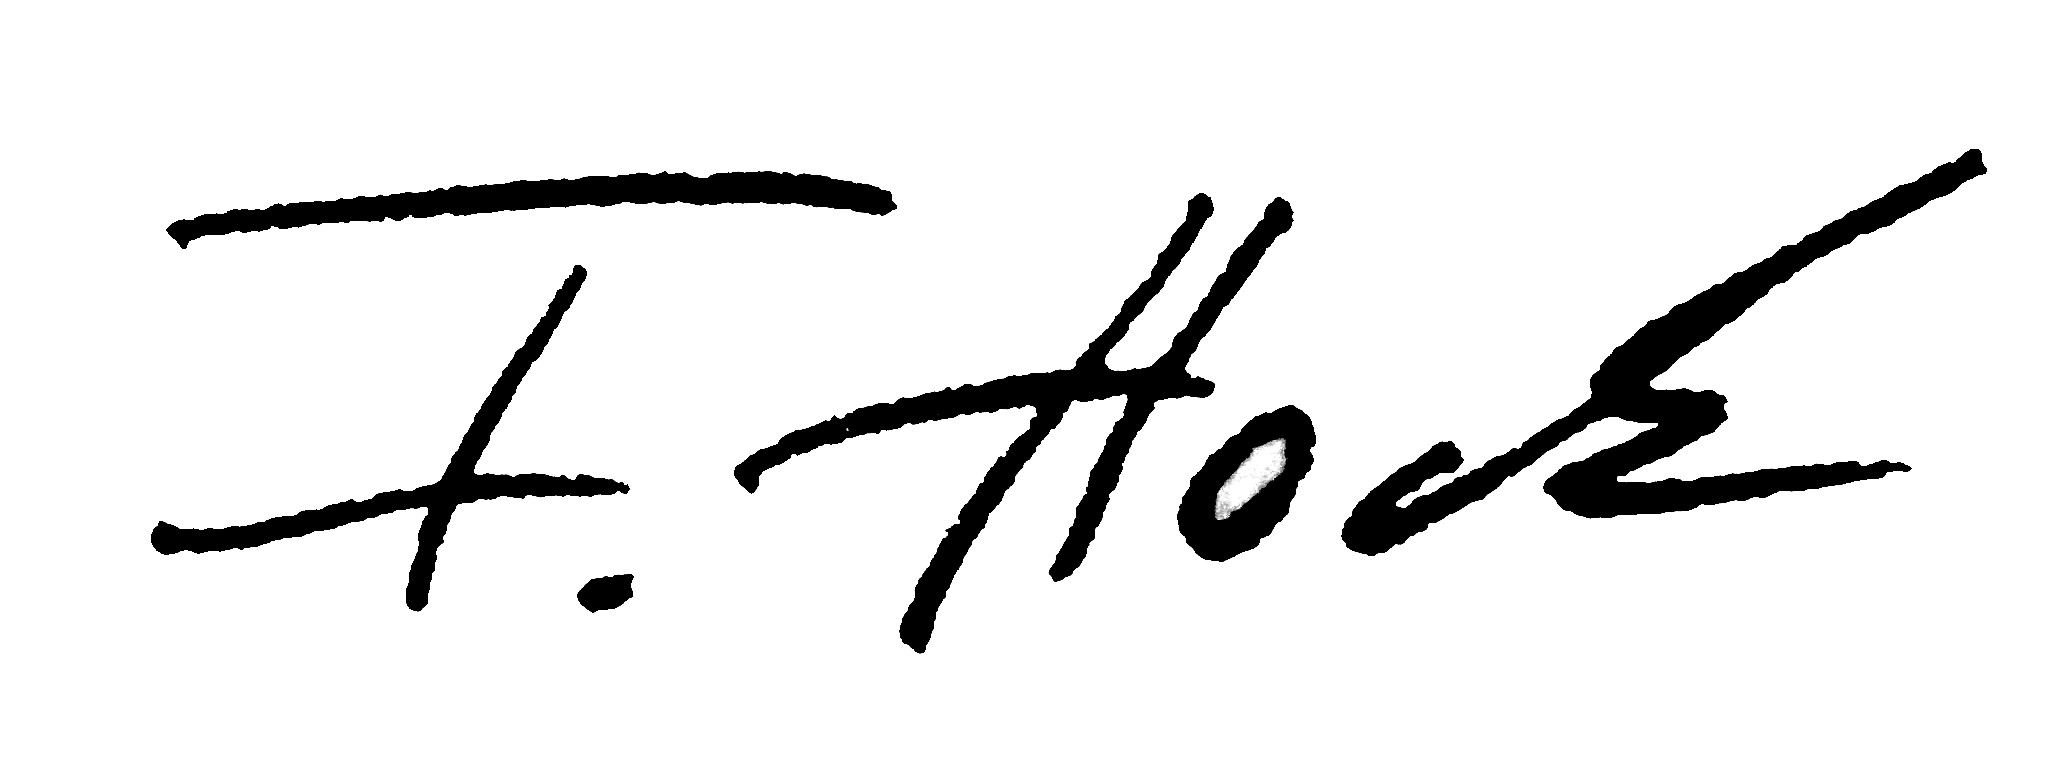 F. Hock